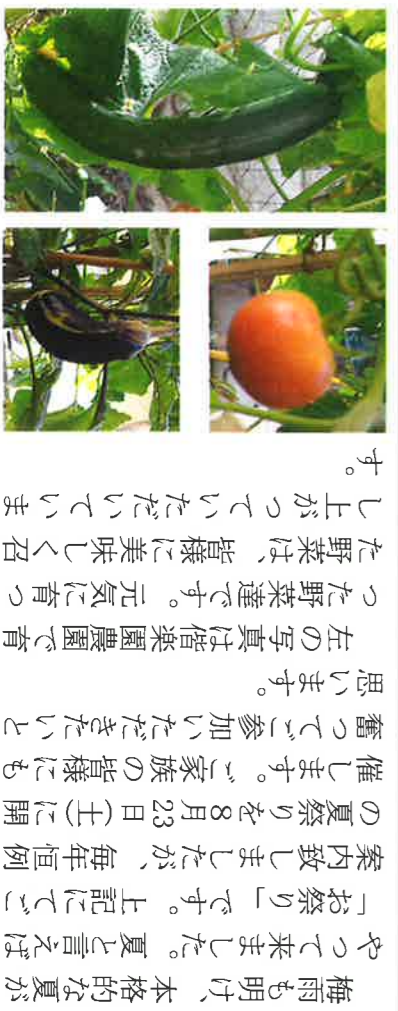 梅雨も明け、本格的な夏が
やって来ました。夏と言えば
「お祭り」です。上記にてご
案内致しましたが、毎年恒例
の夏祭りを8月23日(土)に開
催します。ご家族の皆様にも
奮ってご参加いただきたいと
思います。
左の写真は偕楽園農園で育
った野菜達です。元気に育っ
た野菜は、皆様に美味しく召
し上がっていただいていま
す。